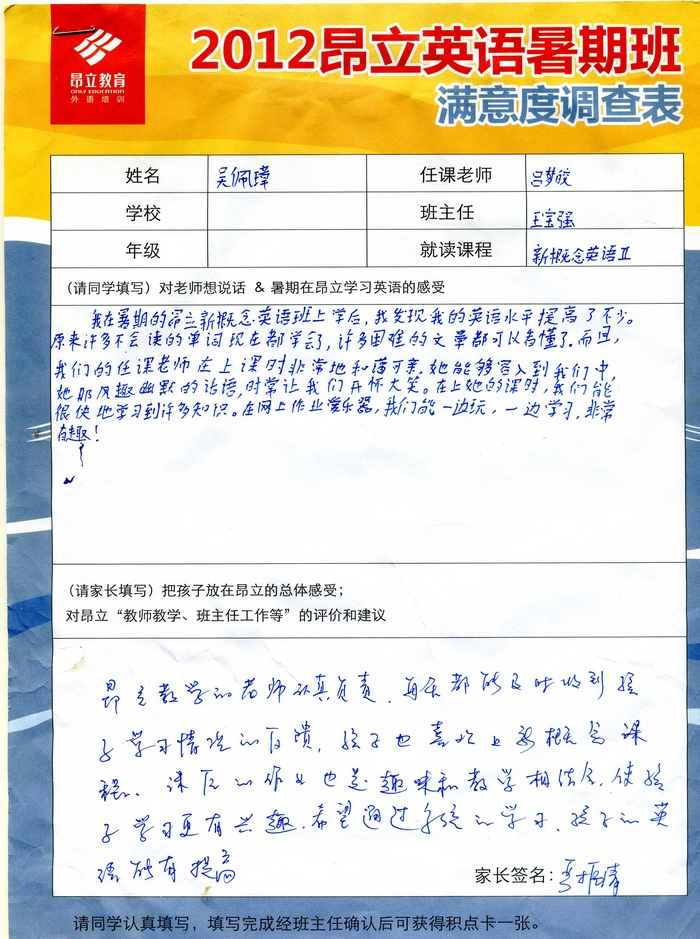 昂立教育
ONLY EDUCATION
外语培训
2012昂立英语暑期班
满意度调查表
姓名 吴佩璋 任课老师 吕梦皎
学校 班主任 王宝强
年级 就读课程 新概念英语II
(请同学填写)对老师想说话 & 暑期在昂立学习英语的感受
我在暑期的昂立新概念英语班上学后,我发现我的英语水平提高了不少。
原来许多不会读的单词现在都学会了,许多困难的文章都可以看懂了.而且,
我们的任课老师在上课时非常地和蔼可亲.她能够容入到我们中,
她那风趣幽默的话语,时常让我们开怀大笑。在上她的课时,我们能
很快地学习到许多知识。在网上作业爱乐器,我们能一边玩,一边学习,非常
有趣!
(请家长填写)把孩子放在昂立的总体感受;
对昂立“教师教学、班主任工作等”的评价和建议
昂立教学的老师认真负责.每天都能及时收到孩
子学习情况的反馈.孩子也喜欢上新概念课
程.课后的作业也是趣味和教学相结合.使孩
子学习更有兴趣.希望通过系统的学习.孩子的英
语能有提高
家长签名:
请同学认真填写,填写完成经班主任确认后可获得积点卡一张。